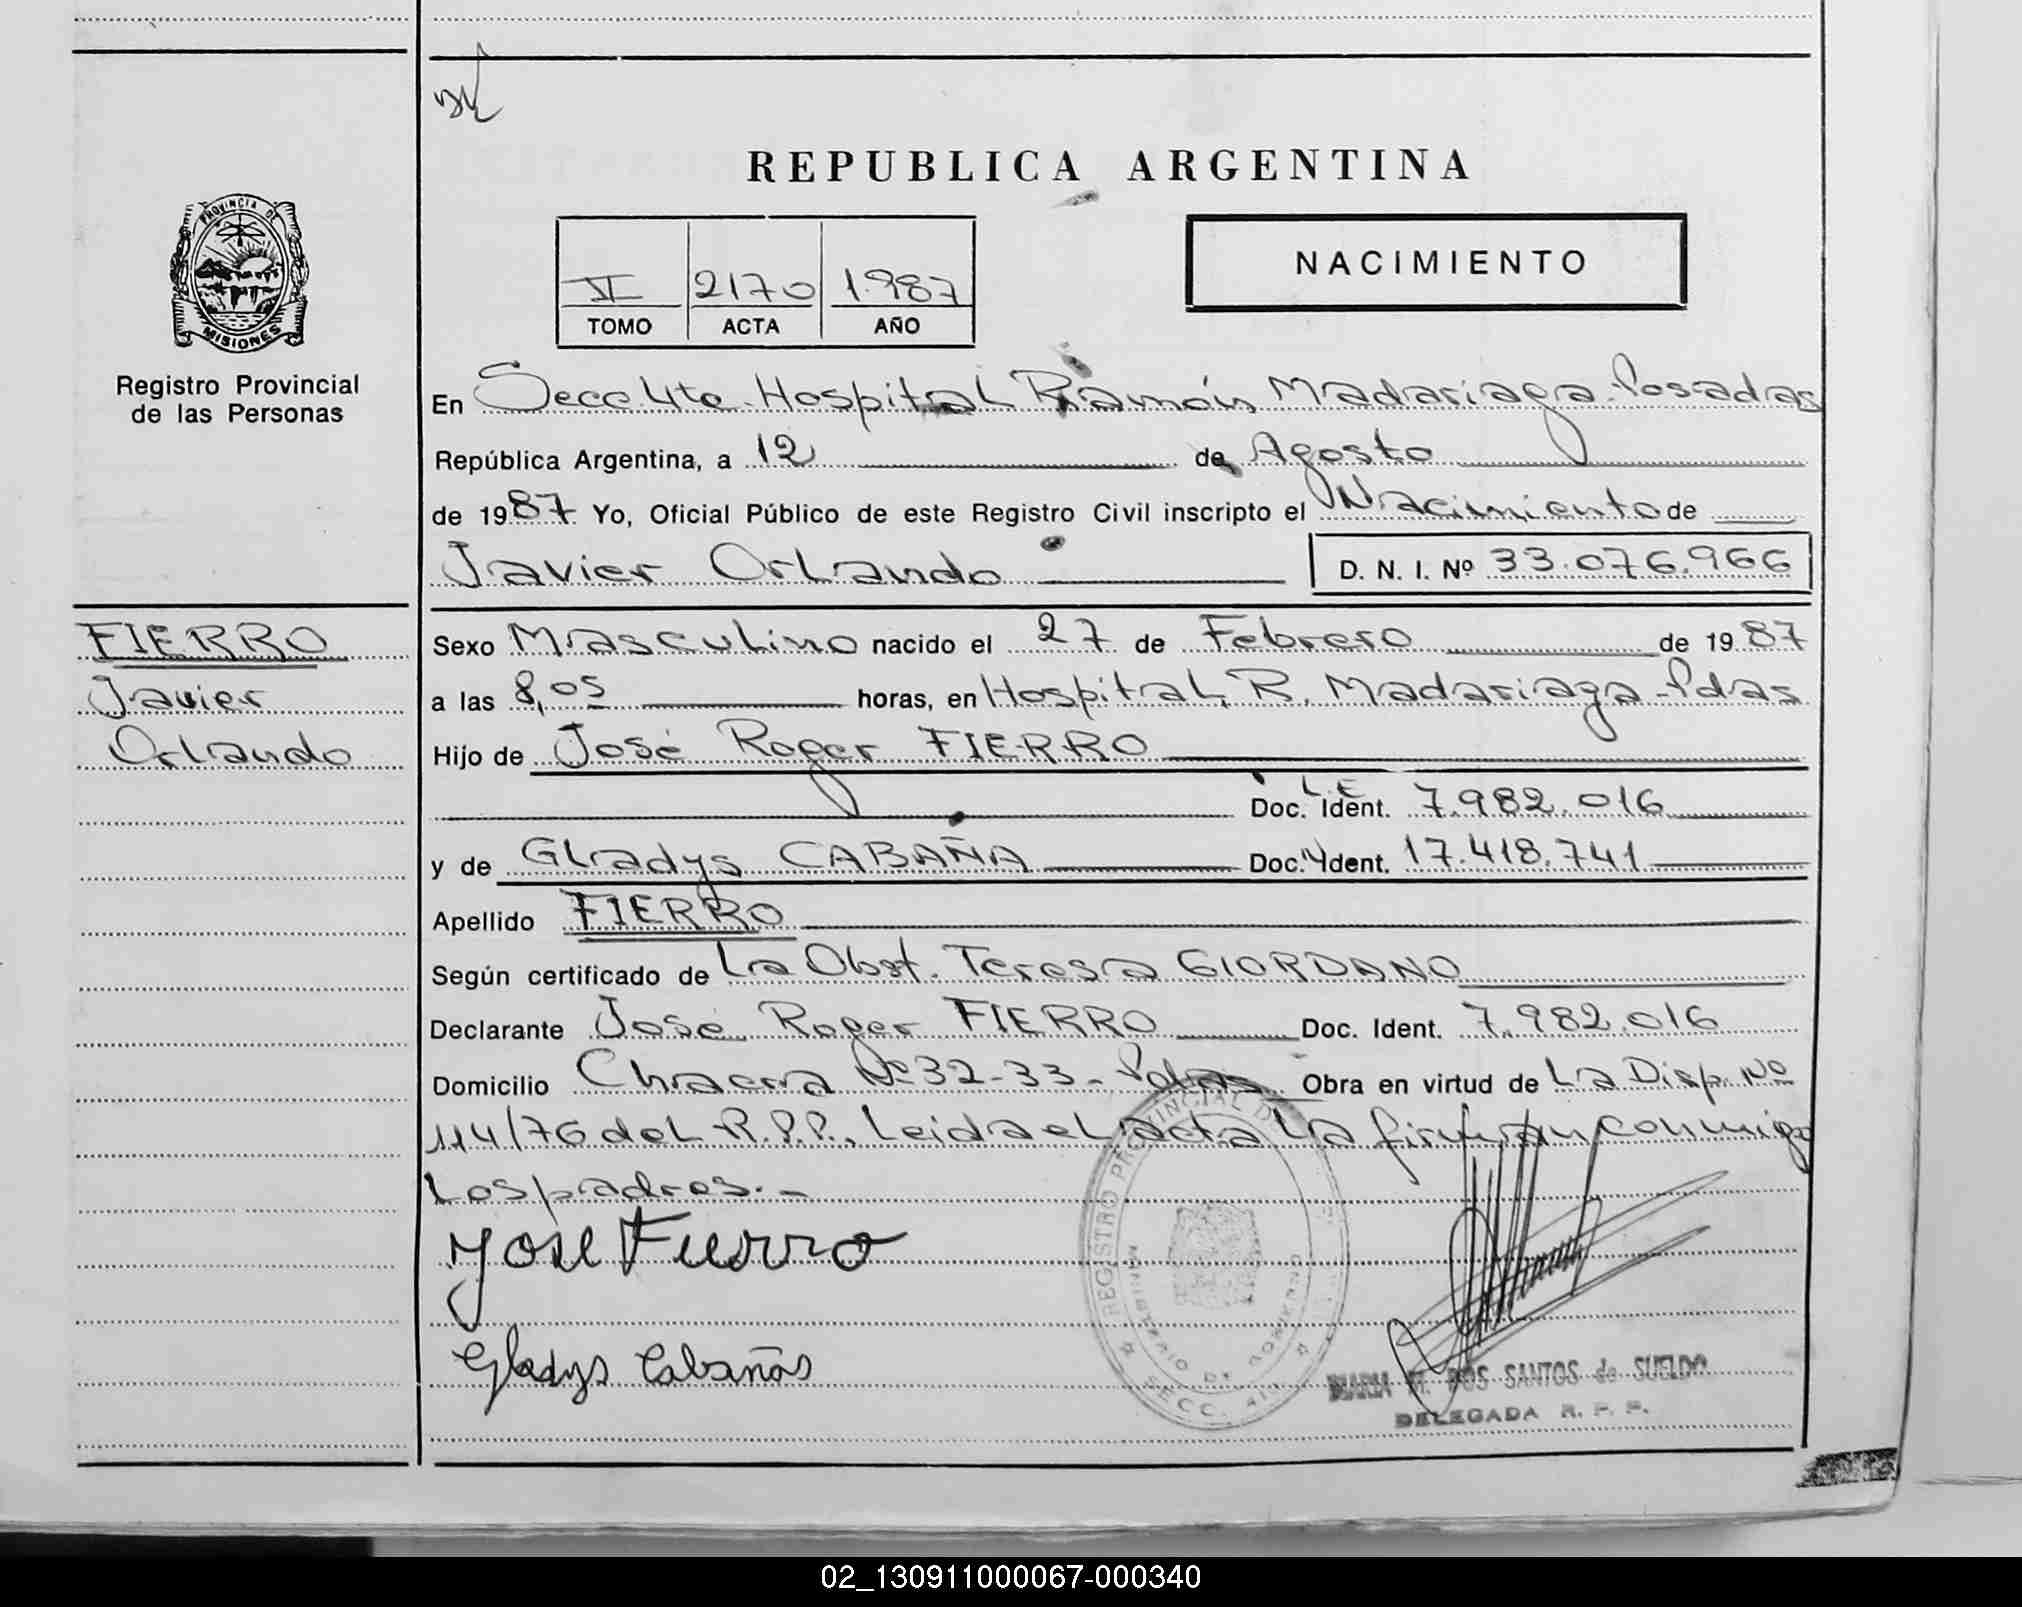 REPUBLICA ARGENTINA
PROVINCIA DE
MISIONES
Registro Provincial
de las Personas
2170 1.987
TOMO ACTA AÑO
NACIMIENTO
En Secc 4ta. Hospital Ramón Madariaga-Posadas
República Argentina, a 12 de Agosto
de 1987 Yo, Oficial Público de este Registro Civil inscripto el Nacimiento de
Javier Orlando D. N. I. Nº 33.076.966
FIERRO
Javier
Orlando
Sexo Masculino nacido el 27 de Febrero de 1987
a las 8,05 horas, en Hospital, R. Madariaga-Pdas
Hijo de José Roger FIERRO
L.E
Doc. Ident. 7.982.016
y de Gladys CABAÑA Doc. Ident. 17.418.741
Apellido FIERRO
Según certificado de La Obst. Teresa GIORDANO
Declarante José Roger FIERRO Doc. Ident. 7.982.016
Domicilio Chacra Nº 32-33- Pdas Obra en virtud de La Disp. Nº
114/76 del R.P.P., Leida el acta La firman conmigo
Los padres.-
José Fierro
Gladys Cabañas
REGISTRO PROVINCIAL DE
MINISTERIO DE GOBIERNO
SECC. 4ta
MARIA M. DOS SANTOS de SUELDO
DELEGADA R. P. P.
02_130911000067-000340